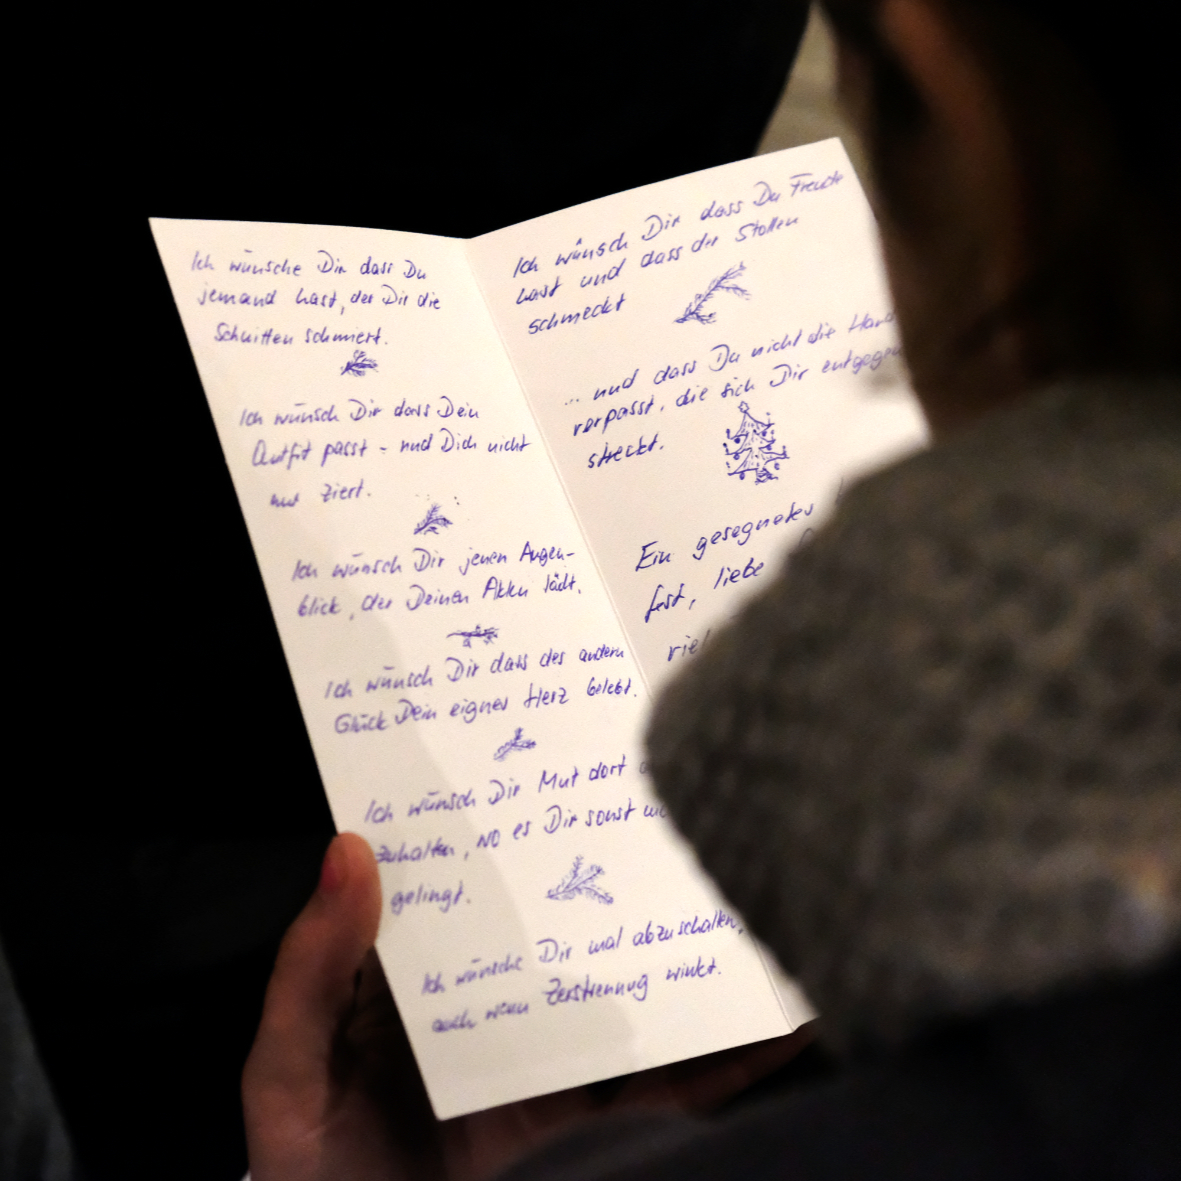 Ich wünsche Dir dass Du
jemand hast, der Dir die
Schnitten schmiert.
Ich wünsch Dir dass Dein
Outfit passt - und Dich nicht
nur ziert.
Ich wünsch Dir jenen Augen-
blick, der Deinen Akku lädt.
Ich wünsch Dir dass des andern
Glück Dein eignes Herz belebt.
Ich wünsch Dir Mut dort
zuhalten, wo es Dir sonst
gelingt.
Ich wünsche Dir mal abzuschalten,
auch wenn Zerstreuung winkt.
Ich wünsch Dir dass Du Freude
hast und dass der Stollen
schmeckt
... und dass Du nicht die Hand
verpasst, die sich Dir entgegen
streckt.
Ein gesegnetes
fest, liebe
viel